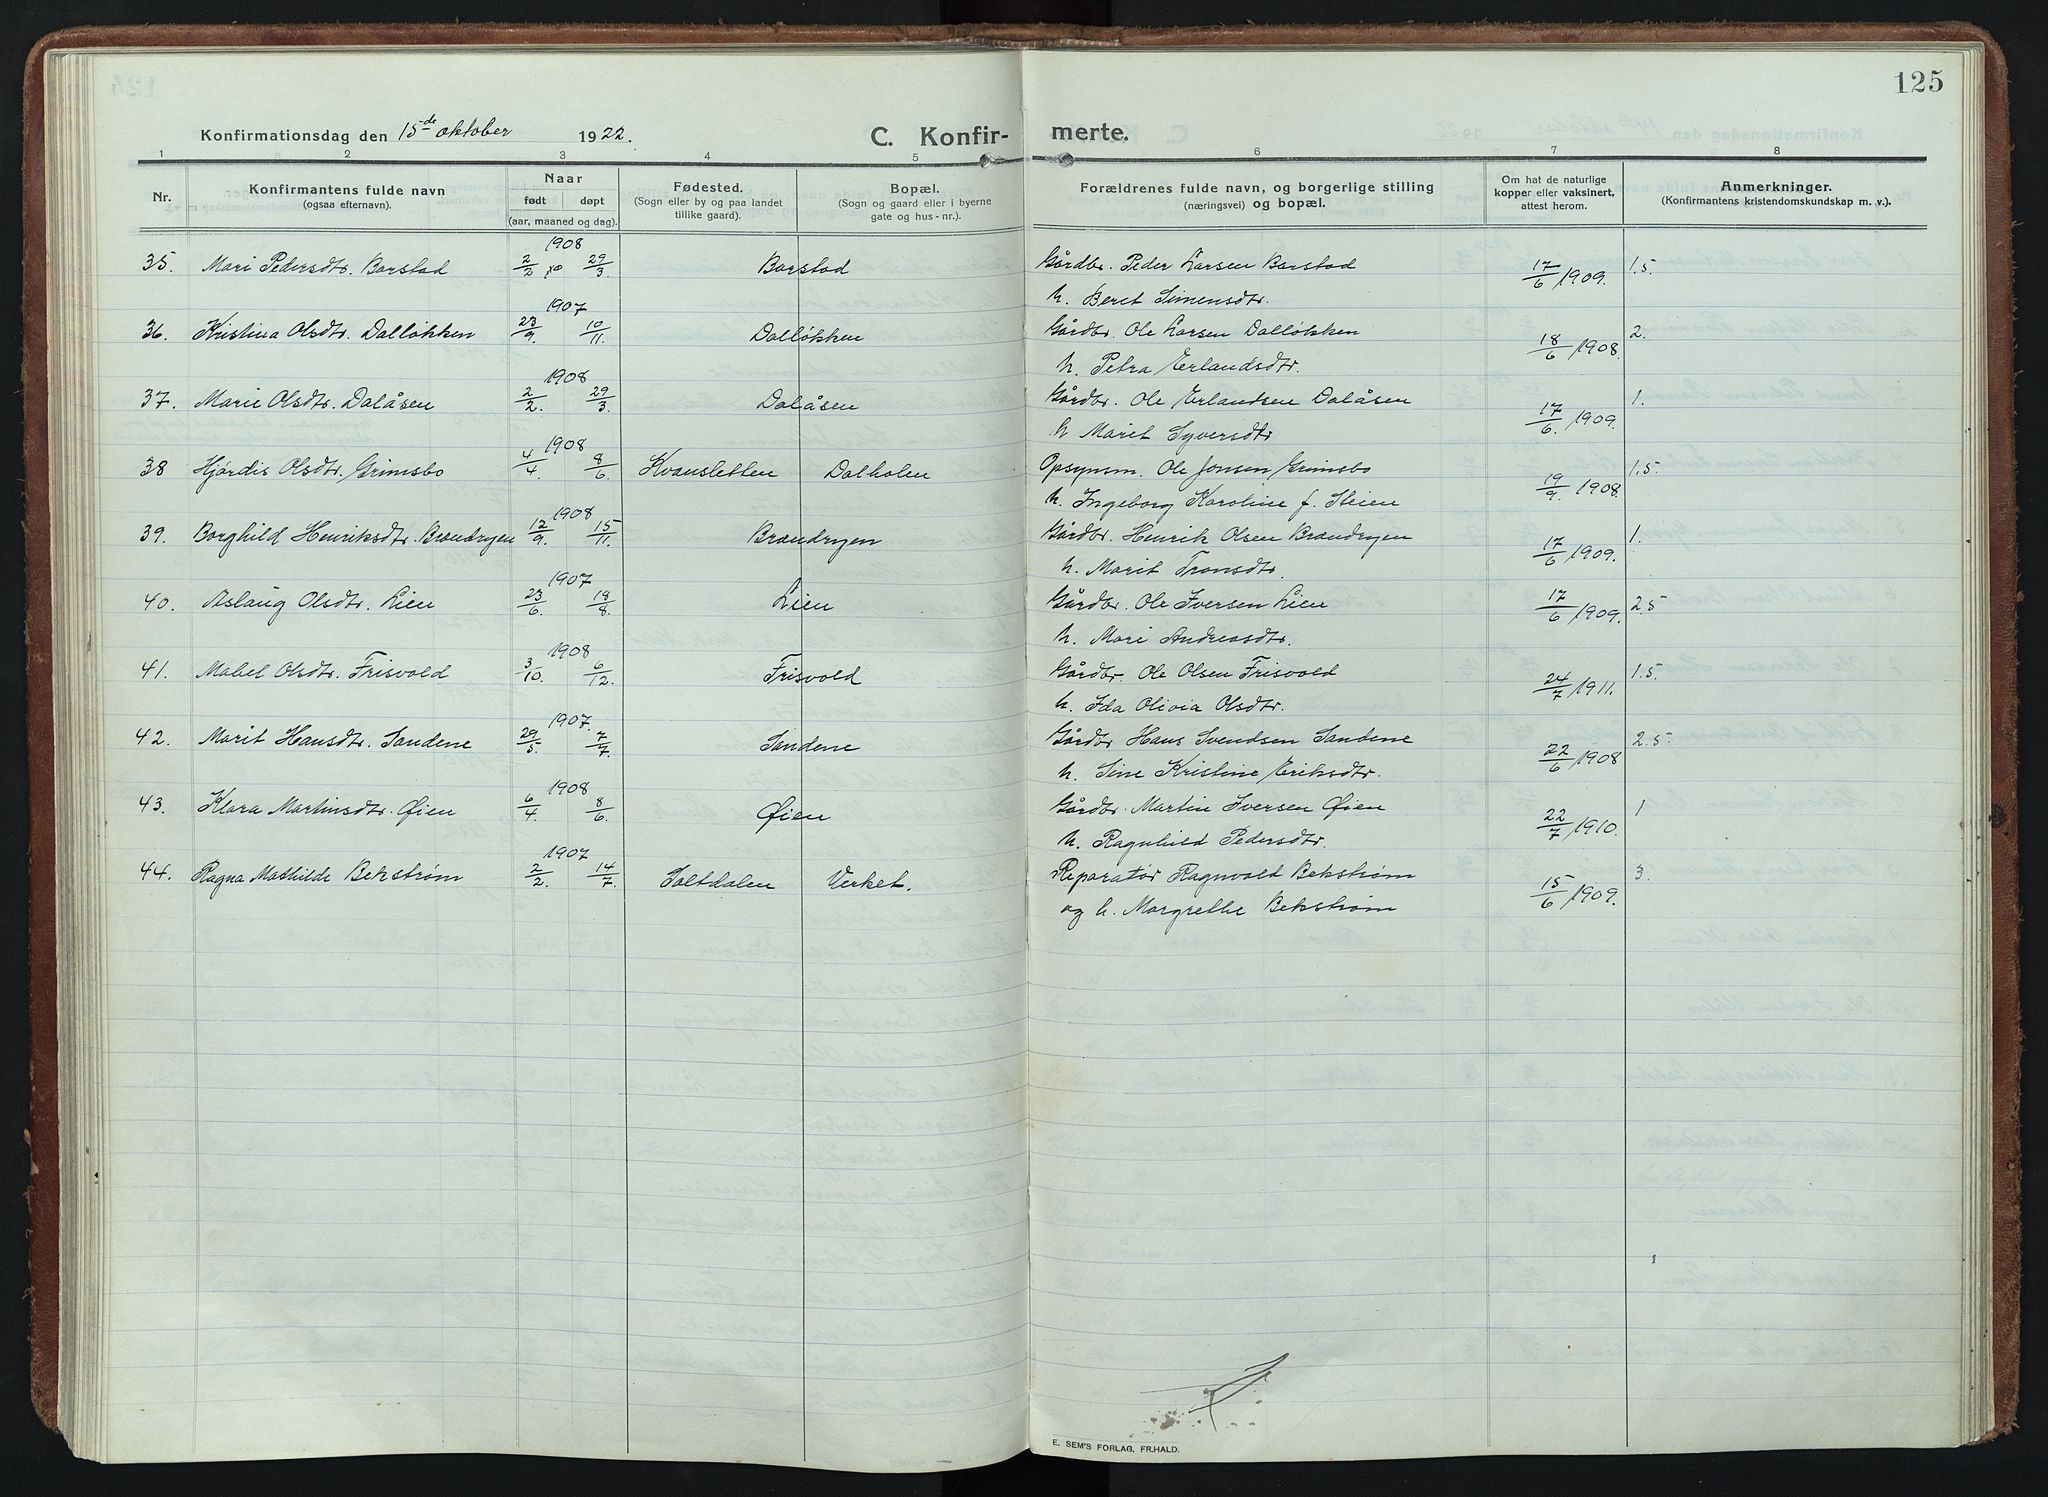 125
Konfirmationsdag den 15de oktober 1922.
C. Konfir-
merte.
1 2 3 4 5 6 7 8
Nr.
Konfirmantens fulde navn
(ogsaa efternavn).
Naar
født døpt
(aar, maaned og dag).
Fødested.
(Sogn eller by og paa landet
tillike gaard).
Bopæl.
(Sogn og gaard eller i byerne
gate og hus-nr.).
Forældrenes fulde navn, og borgerlige stilling
(næringsvei) og bopæl.
Om hat de naturlige
kopper eller vaksinert,
attest herom.
Anmerkninger.
(Konfirmantens kristendomskundskap m. v.).
1908
35. Mari Pedersdtr. Barstad 2/2 29/3. Barstad Gårdbr. Peder Larsen Barstad 17/6 1909. 1.5.
h. Beret Simensdtr.
1907
36. Kristina Olsdtr. Dalløkken 23/9. 10/11. Dalløkken Gårdbr. Ole Larsen Dalløkken 18/6 1908. 2.
h. Petra Erlandsdtr.
1908
37. Marie Olsdtr. Dalåsen 2/2. 29/3. Dalåsen Gårdbr. Ole Erlandsen Dalåsen 17/6. 1909. 1.
h Marit Syversdtr
1908
38 Hjørdis Olsdtr. Grimsbo 4/4. 8/6 Kvansletten Dalholen Opsynsm. Ole Jonsen Grimsbo 19/9. 1908. 1.5.
h. Ingeborg Karoline f. Steien
1908
39. Borghild Henriksdtr. Brandryen 12/9. 15/11. Brandryen Gårdbr. Henrik Olsen Brandryen 17/6 1909. 1.
h. Marit Tronsdtr.
1907
40. Aslaug Olsdtr. Lien 23/6. 18/8. Lien Gårdbr. Ole Iversen Lien 17/6 1909. 2.5
h. Mari Andreasdtr.
1908
41. Mabel Olsdtr. Frisvold 3/10. 6/12. Frisvold Gårdbr. Ole Olsen Frisvold 24/7 1911. 1.5.
h. Ida Olivia Olsdtr.
1907.
42. Marit Hansdtr. Sandene 29/5. 7/7 Sandene Gårdbr Hans Svendsen Sandene 22/6 1908 2.5.
h. Sine Kristine Eriksdtr.
1908
43. Klara Martinsdtr. Øien 6/4. 8/6. Øien Gårdbr. Martin Iversen Øien 22/7 1910. 1
h. Ragnhild Pedersdtr.
1907
44. Ragna Mathilde Bekstrøm 2/2. 14/7. Saltdalen Verket. Reparatør Ragnvald Bekstrøm 15/6 1909. 3.
og h. Margrethe Bekstrøm
E. SEM'S FORLAG, FR.HALD.